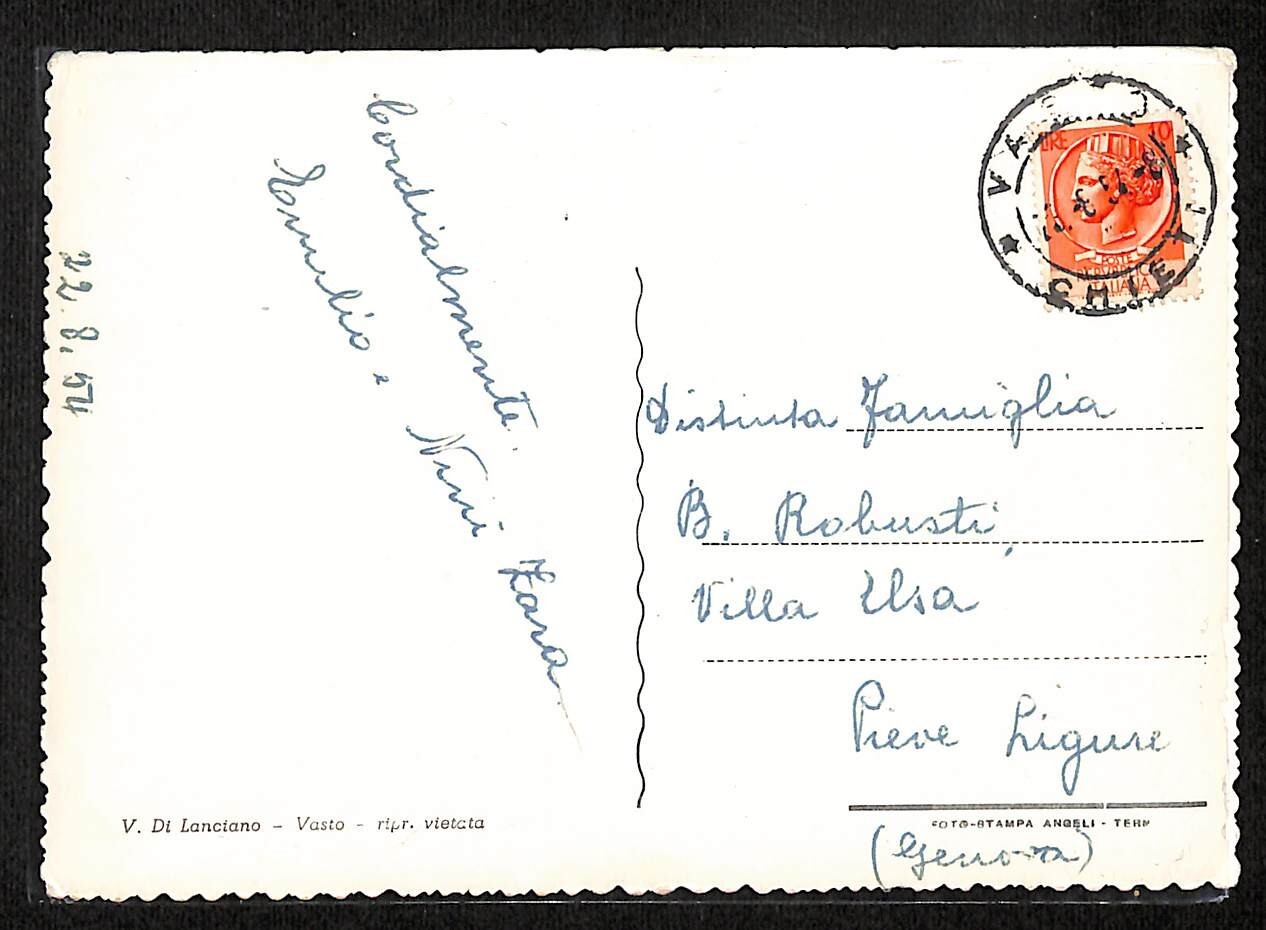 22.8.54
Cordialmente.
Emilio e Nini Zara
V. Di Lanciano - Vasto - ripr. vietata
LIRE 10
POSTE
REPVBBLICA
ITALIANA
VASTO
CHIETI
Distinta Famiglia
B. Robusti,
Villa Elsa
Pieve Ligure
(Genova)
FOTO-STAMPA ANGELI - TERNI